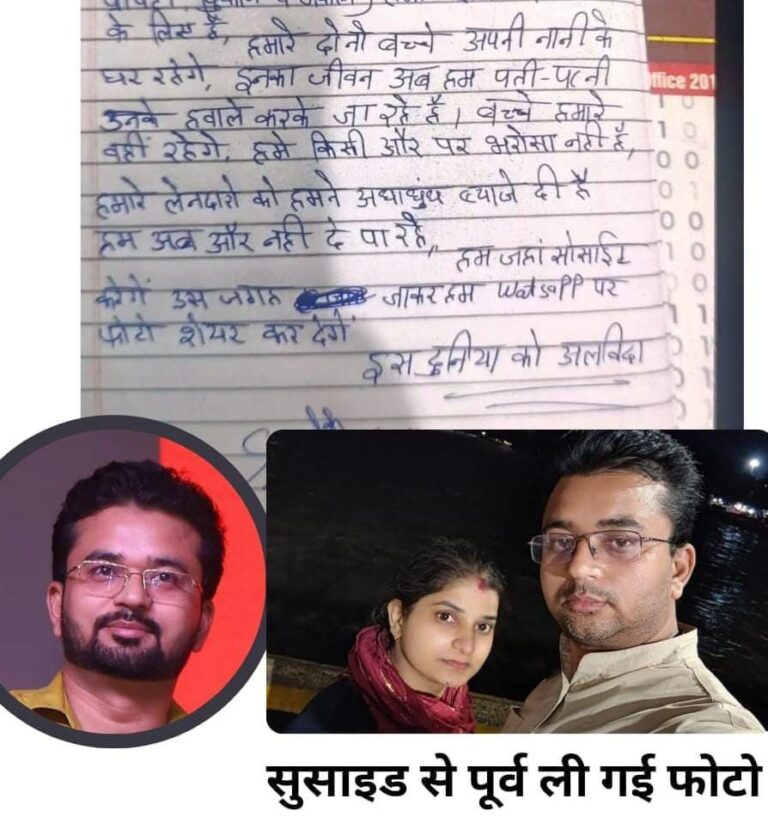 के लिए है, हमारे दोनो बच्चे अपनी नानी के
घर रहेगे, इनका जीवन अब हम पती-पत्नी
उनके हवाले करके जा रहे है। बच्चे हमारे
वहीं रहेगे, हमे किसी और पर भरोसा नही है,
हमारे लेनदारो को हमने अंधाधुंध ब्याजे दी है
हम अब और नही दे पा रहे,
हम जहां सोसाईट
करेगें उस जगह जाकर हम Watsapp पर
फोटो शेयर कर देगें
इस दुनिया को अलविदा
ffice 201
सुसाइड से पूर्व ली गई फोटो